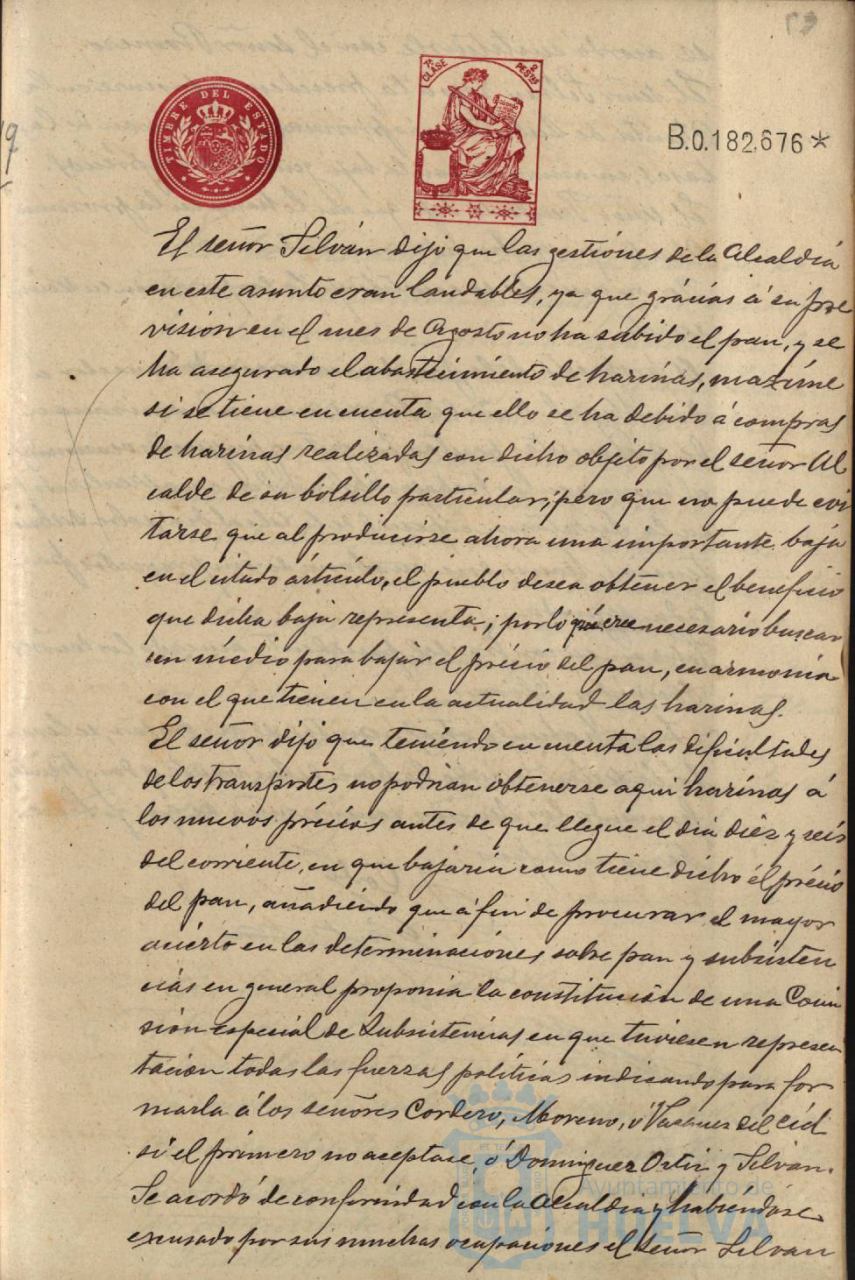 TIMBRE DEL ESTADO
7ª CLASE 2 PESTAS
B.0.182.676*
El señor Silván dijo que las gestiones de la Alcaldía
en este asunto eran laudables, ya que grácias á su pre
visión en el mes de Agosto no ha subido el pan, y se
ha asegurado el abastecimiento de harinas, maxíme
si se tiene en cuenta que ello se ha debido á compras
de harinas realizadas con dicho objeto por el señor Al
calde de su bolsillo particular; pero que no puede evi
tarse que al producirse ahora una importante baja
en el citado ártículo, el pueblo desea obtener el beneficio
que dicha baja representa; por lo que cree necesario buscar
un médio para bajar el précio del pan, en armonia
con el que tienen en la actualidad las harinas.
El señor dijo que teniendo en cuenta las dificultades
de los transportes no podrian obtenerse aqui harinas á
los nuevos précios antes de que llegue el dia diez y seis
del corriente, en que bajaria como tiene dicho él précio
del pan, añadiendo que á fin de procurar el mayor
acierto en las determinaciones sobre pan y subsisten
cias en general proponia la constitución de una Comi
sión especial de Subsistencias en que tuviesen represen
tación todas las fuerzas políticas indicando para for
marla á los señores Cordero, Moreno, ó Vazquez del Cid
si el primero no aceptase, ó Dominguez Ortiz y Silván.
Se acordó de conformidad con la Alcaldia y habiéndose
excusado por sus muchas ocupaciones el señor Silvan
Ayuntamiento de
HUELVA